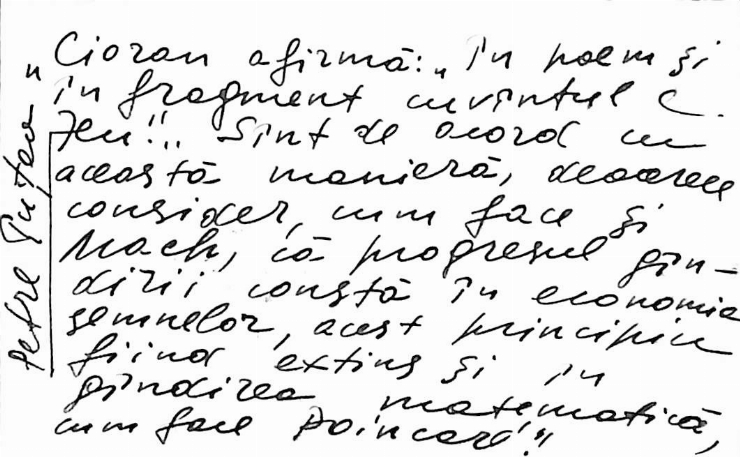 Petre Țuțea
"Cioran afirmă: "În poem și
în fragment cuvîntul e
zeu!". Sînt de acord cu
această manieră, deoarece
consider, cum face și
Mach, că progresul gîn-
dirii constă în economia
semnelor, acest principiu
fiind extins și în
gîndirea matematică,
cum face Poincaré!"